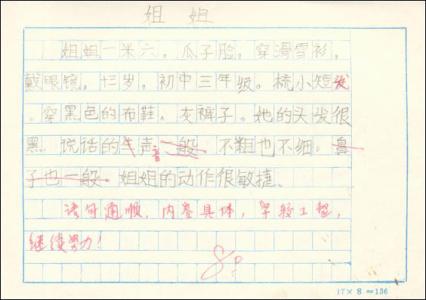 姐姐
姐姐一米六，瓜子脸，穿滑雪衫，
戴眼镜，十三岁，初中三年级。梳小短发
，穿黑色的布鞋，灰裤子。她的头发很
黑，说话的声音一般，不粗也不细。鼻
子也一般。姐姐的动作很敏捷。
语句通顺，内容具体，字较工整，
继续努力！
17×8=136